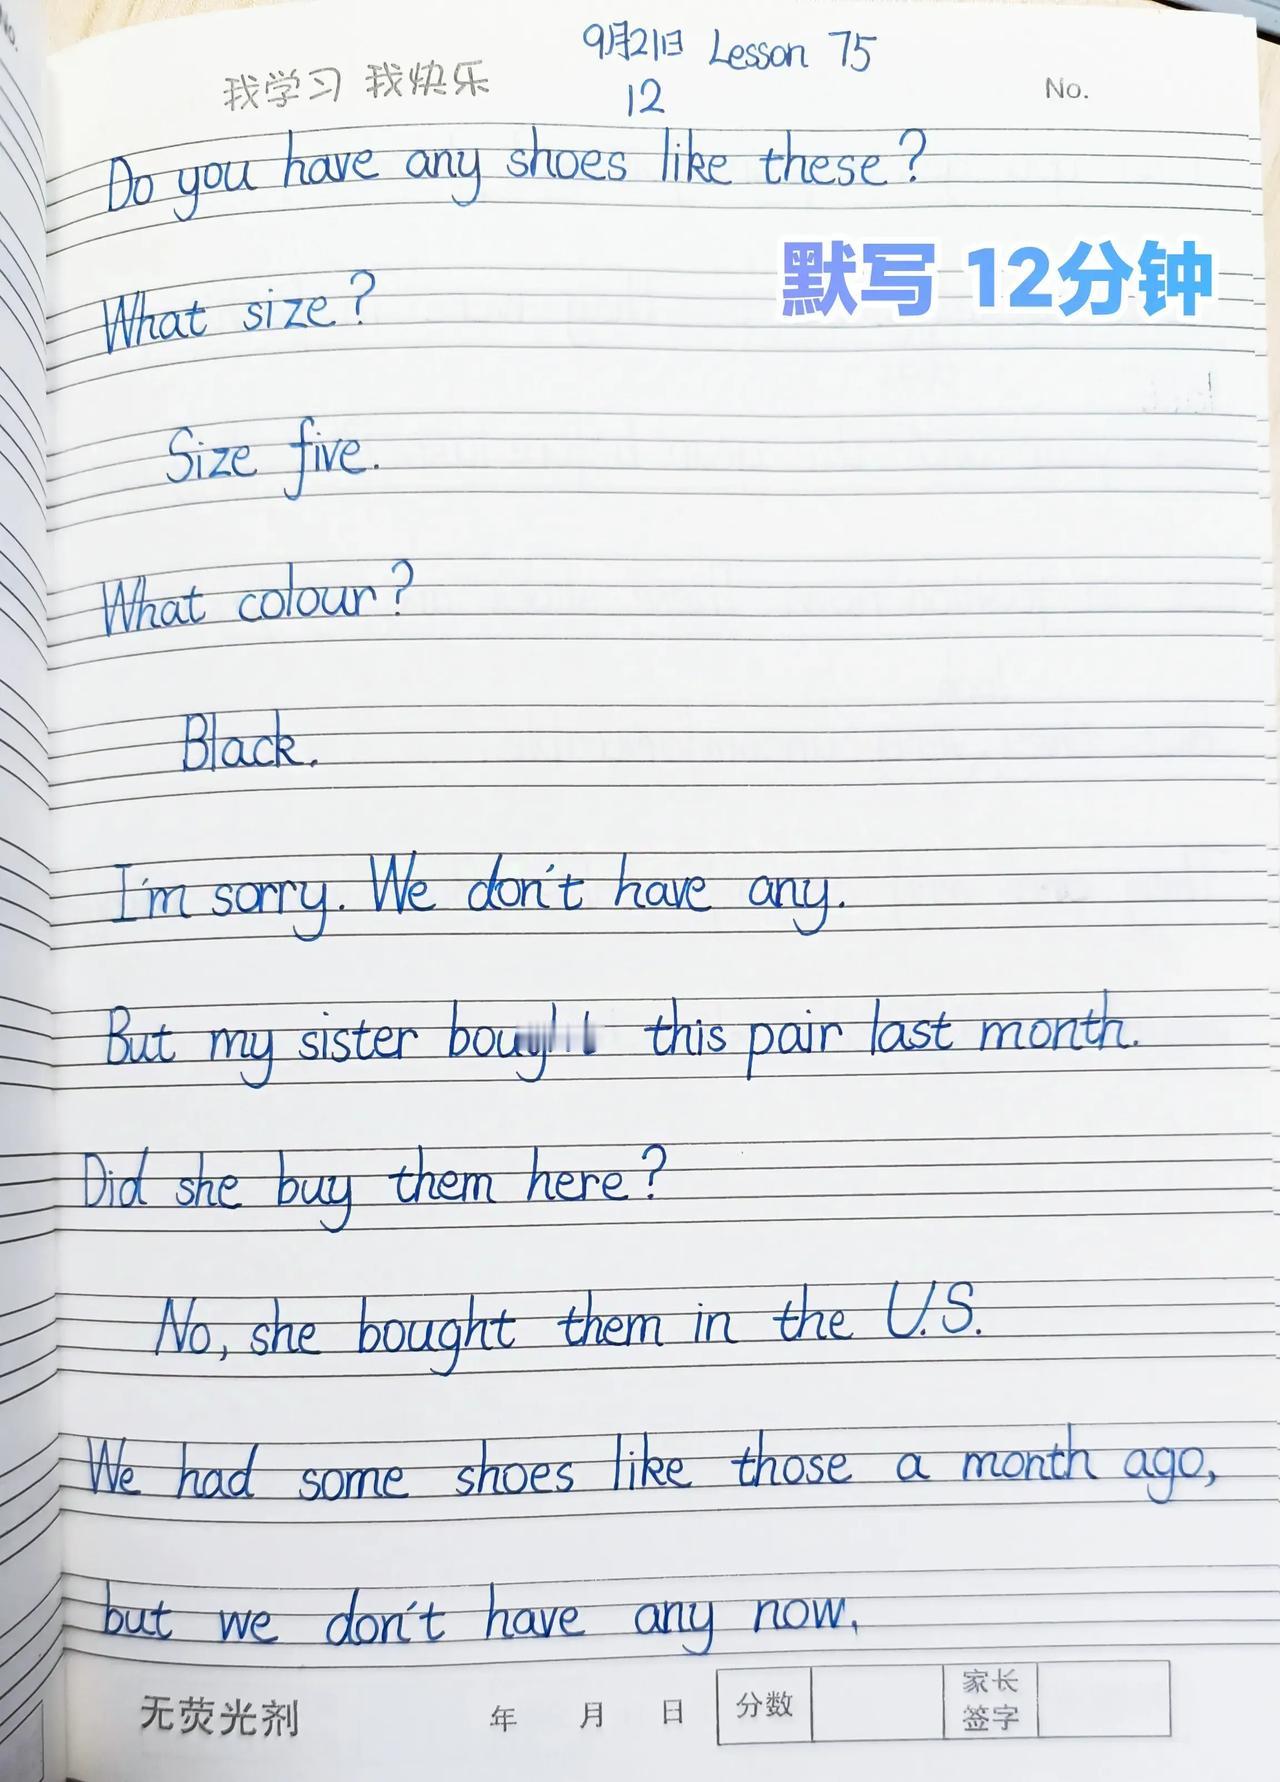 9月21日 Lesson 75
我学习 我快乐
12
No.
Do you have any shoes like these?
默写 12分钟
What size?
Size five.
What colour?
Black.
I'm sorry. We don't have any.
But my sister this pair last month.
Did she buy them here?
No, she bought them in the U.S.
We had some shoes like those a month ago,
but we don't have any now.
无荧光剂 年 月 日 分数 家长签字